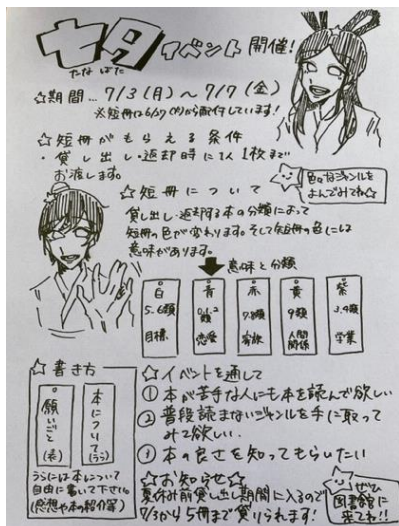 七夕イベント開催!
たなばた
☆期間…7/3(月)～7/7(金)
☆短冊がもらえる条件
・貸し出し・返却時に1人1枚まで
お渡します。
色々なジャンルを
よんでみてね☆
☆短冊について
貸し出し・返却する本の分類によって
短冊の色が変わります。そして短冊の色には
意味があります。
意味と分類
白
5.6類
目標
青
0.1.2
類
恋愛
赤
7.8類
家族
黄
9類
人間
関係
紫
3.4類
学業
☆書き方
願いごと
(表)
本について
(うら)
うらには本について
自由に書いて下さい。
(感想や本の紹介等)
☆イベントを通して
①本が苦手な人にも本を読んで欲しい
②普段読まないジャンルを手に取って
みて欲しい.
③本の良さを知ってもらいたい
☆お知らせ☆
夏休み前貸し出し期間に入るので
7/3から5冊まで借りられます!
ぜひ
図書館に
来てね!!